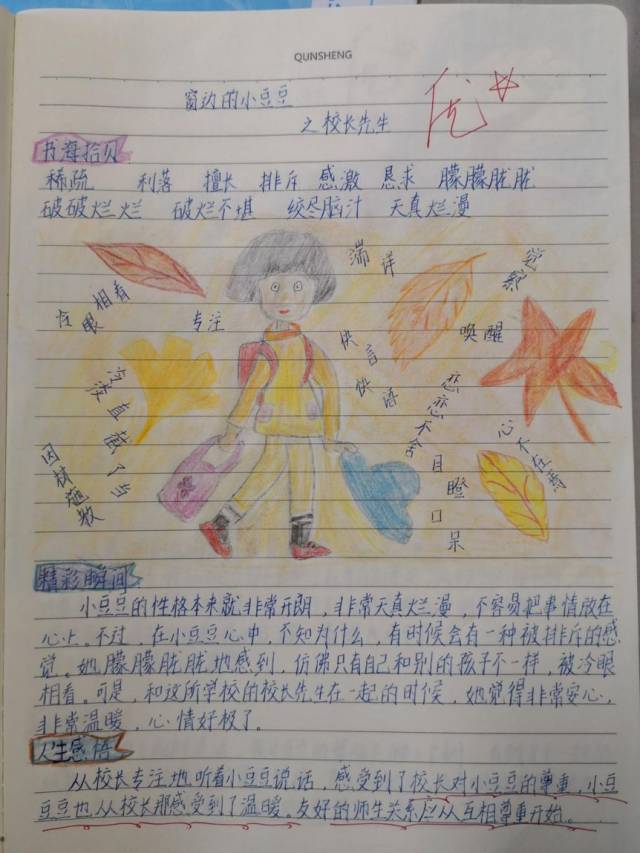 QUNSHENG
窗边的小豆豆
之校长先生
优
书海拾贝
稀疏 利落 擅长 排斥 感激 恳求 朦朦胧胧
破破烂烂 破烂不堪 绞尽脑汁 天真烂漫
冷眼相看
专注
端详
觉察
唤醒
快言快语
恋恋不舍
心不在焉
直截了当
目瞪口呆
因材施教
精彩瞬间
小豆豆的性格本来就非常开朗，非常天真烂漫，不容易把事情放在
心上。不过，在小豆豆心中，不知为什么，有时候会有一种被排斥的感
觉。她朦朦胧胧地感到，仿佛只有自己和别的孩子不一样，被冷眼
相看。可是，和这所学校的校长先生在一起的时候，她觉得非常安心，
非常温暖，心情好极了。
人生感悟
从校长专注地听着小豆豆说话，感受到了校长对小豆豆的尊重，小豆
豆豆也从校长那感受到了温暖。友好的师生关系应从互相尊重开始。